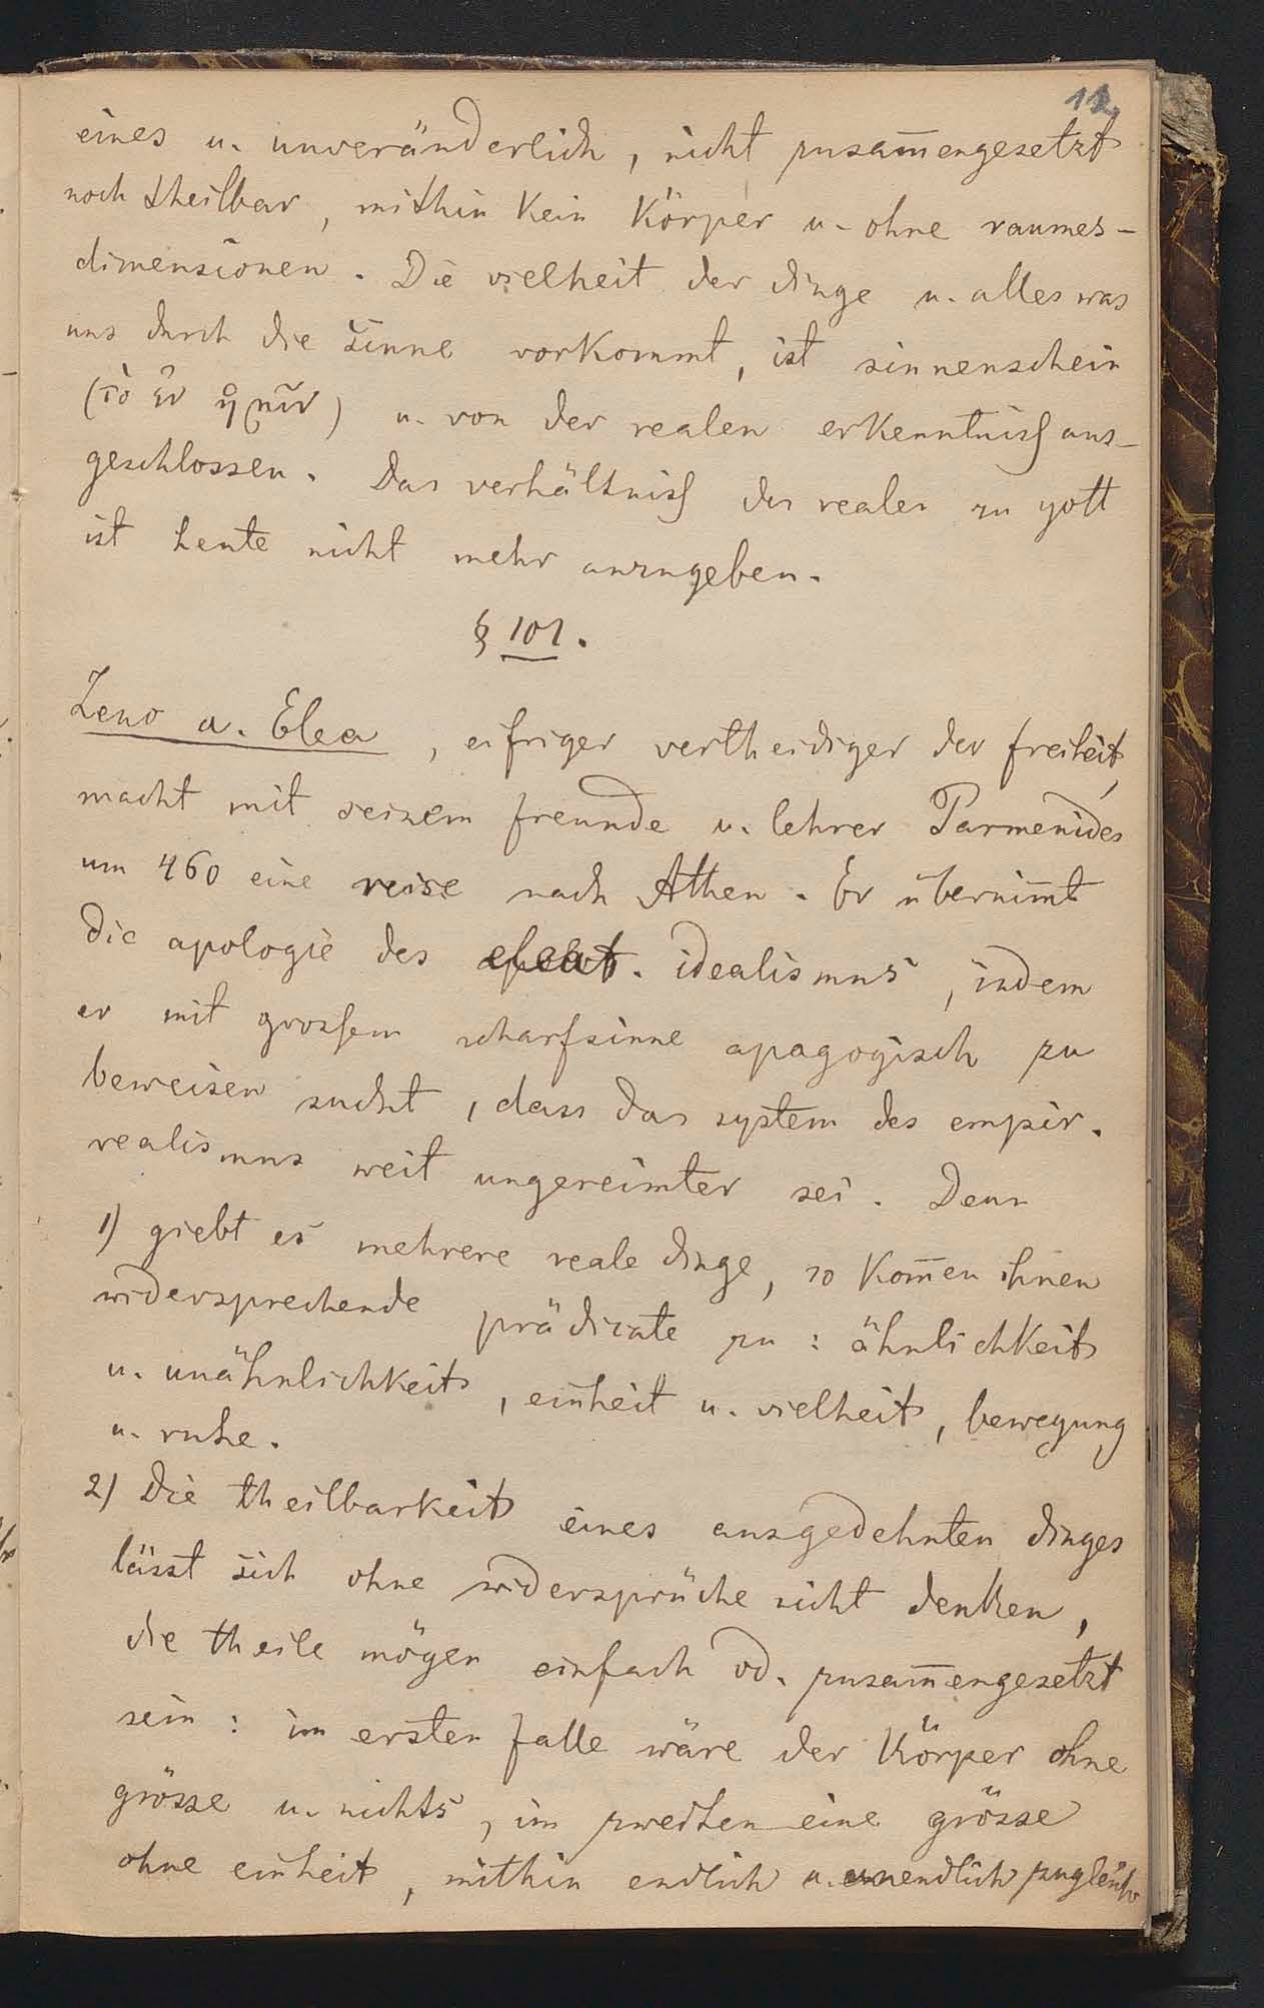 12
eines u. unveränderlich, nicht zusam̅engesetzt
noch theilbar, mithin kein körper u. ohne raumes-
dimensionen. Die vielheit der dinge u. alles was
uns durch die sinne vorkommt, ist sinnenschein
(τὸ ἓν) u. von der realen erkenntniss aus-
geschlossen. Das verhältniss des realen zu gott
ist heute nicht mehr anzugeben.
§ 101.
Zeno a. Elea, eifriger vertheidiger der freiheit,
macht mit seinem freunde u. lehrer Parmenides
um 460 eine reise nach Athen. Er übernim̅t
die apologie des eleat. idealismus, indem
er mit grossem scharfsinne apagogisch zu
beweisen sucht, dass das system des empir.
realismus weit ungereimter sei. Denn
1) giebt es mehrere reale dinge, so kom̅en ihnen
widersprechende prädicate zu: ähnlichkeit
u. unähnlichkeit, einheit u. vielheit, bewegung
u. ruhe.
2) Die theilbarkeit eines ausgedehnten dinges
lässt sich ohne widersprüche nicht denken,
die theile mögen einfach od. zusam̅engesetzt
sein: im ersten falle wäre der körper ohne
grösse u. nichts, im zweiten eine grösse
ohne einheit, mithin endlich u. unendlich zugleich